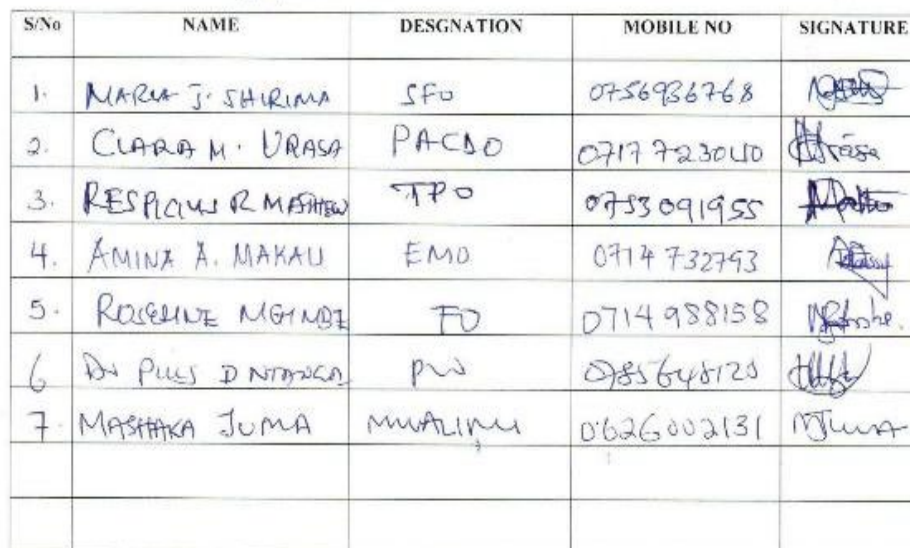 S/No NAME DESGNATION MOBILE NO SIGNATURE
1. MARIA J. SHIRIMA SFO 0756936768
2. CLARA M. URASA PACDO 0717723040 Urasa
3. RESPICIUS R MATHEW TPO 0753091955
4. AMINA A. MAKALI EMO 0714732793
5. FO 0714988158
6 PIUS D NTANGA
7. MASHAKA JUMA MWALIMU 0626002131 MJuma